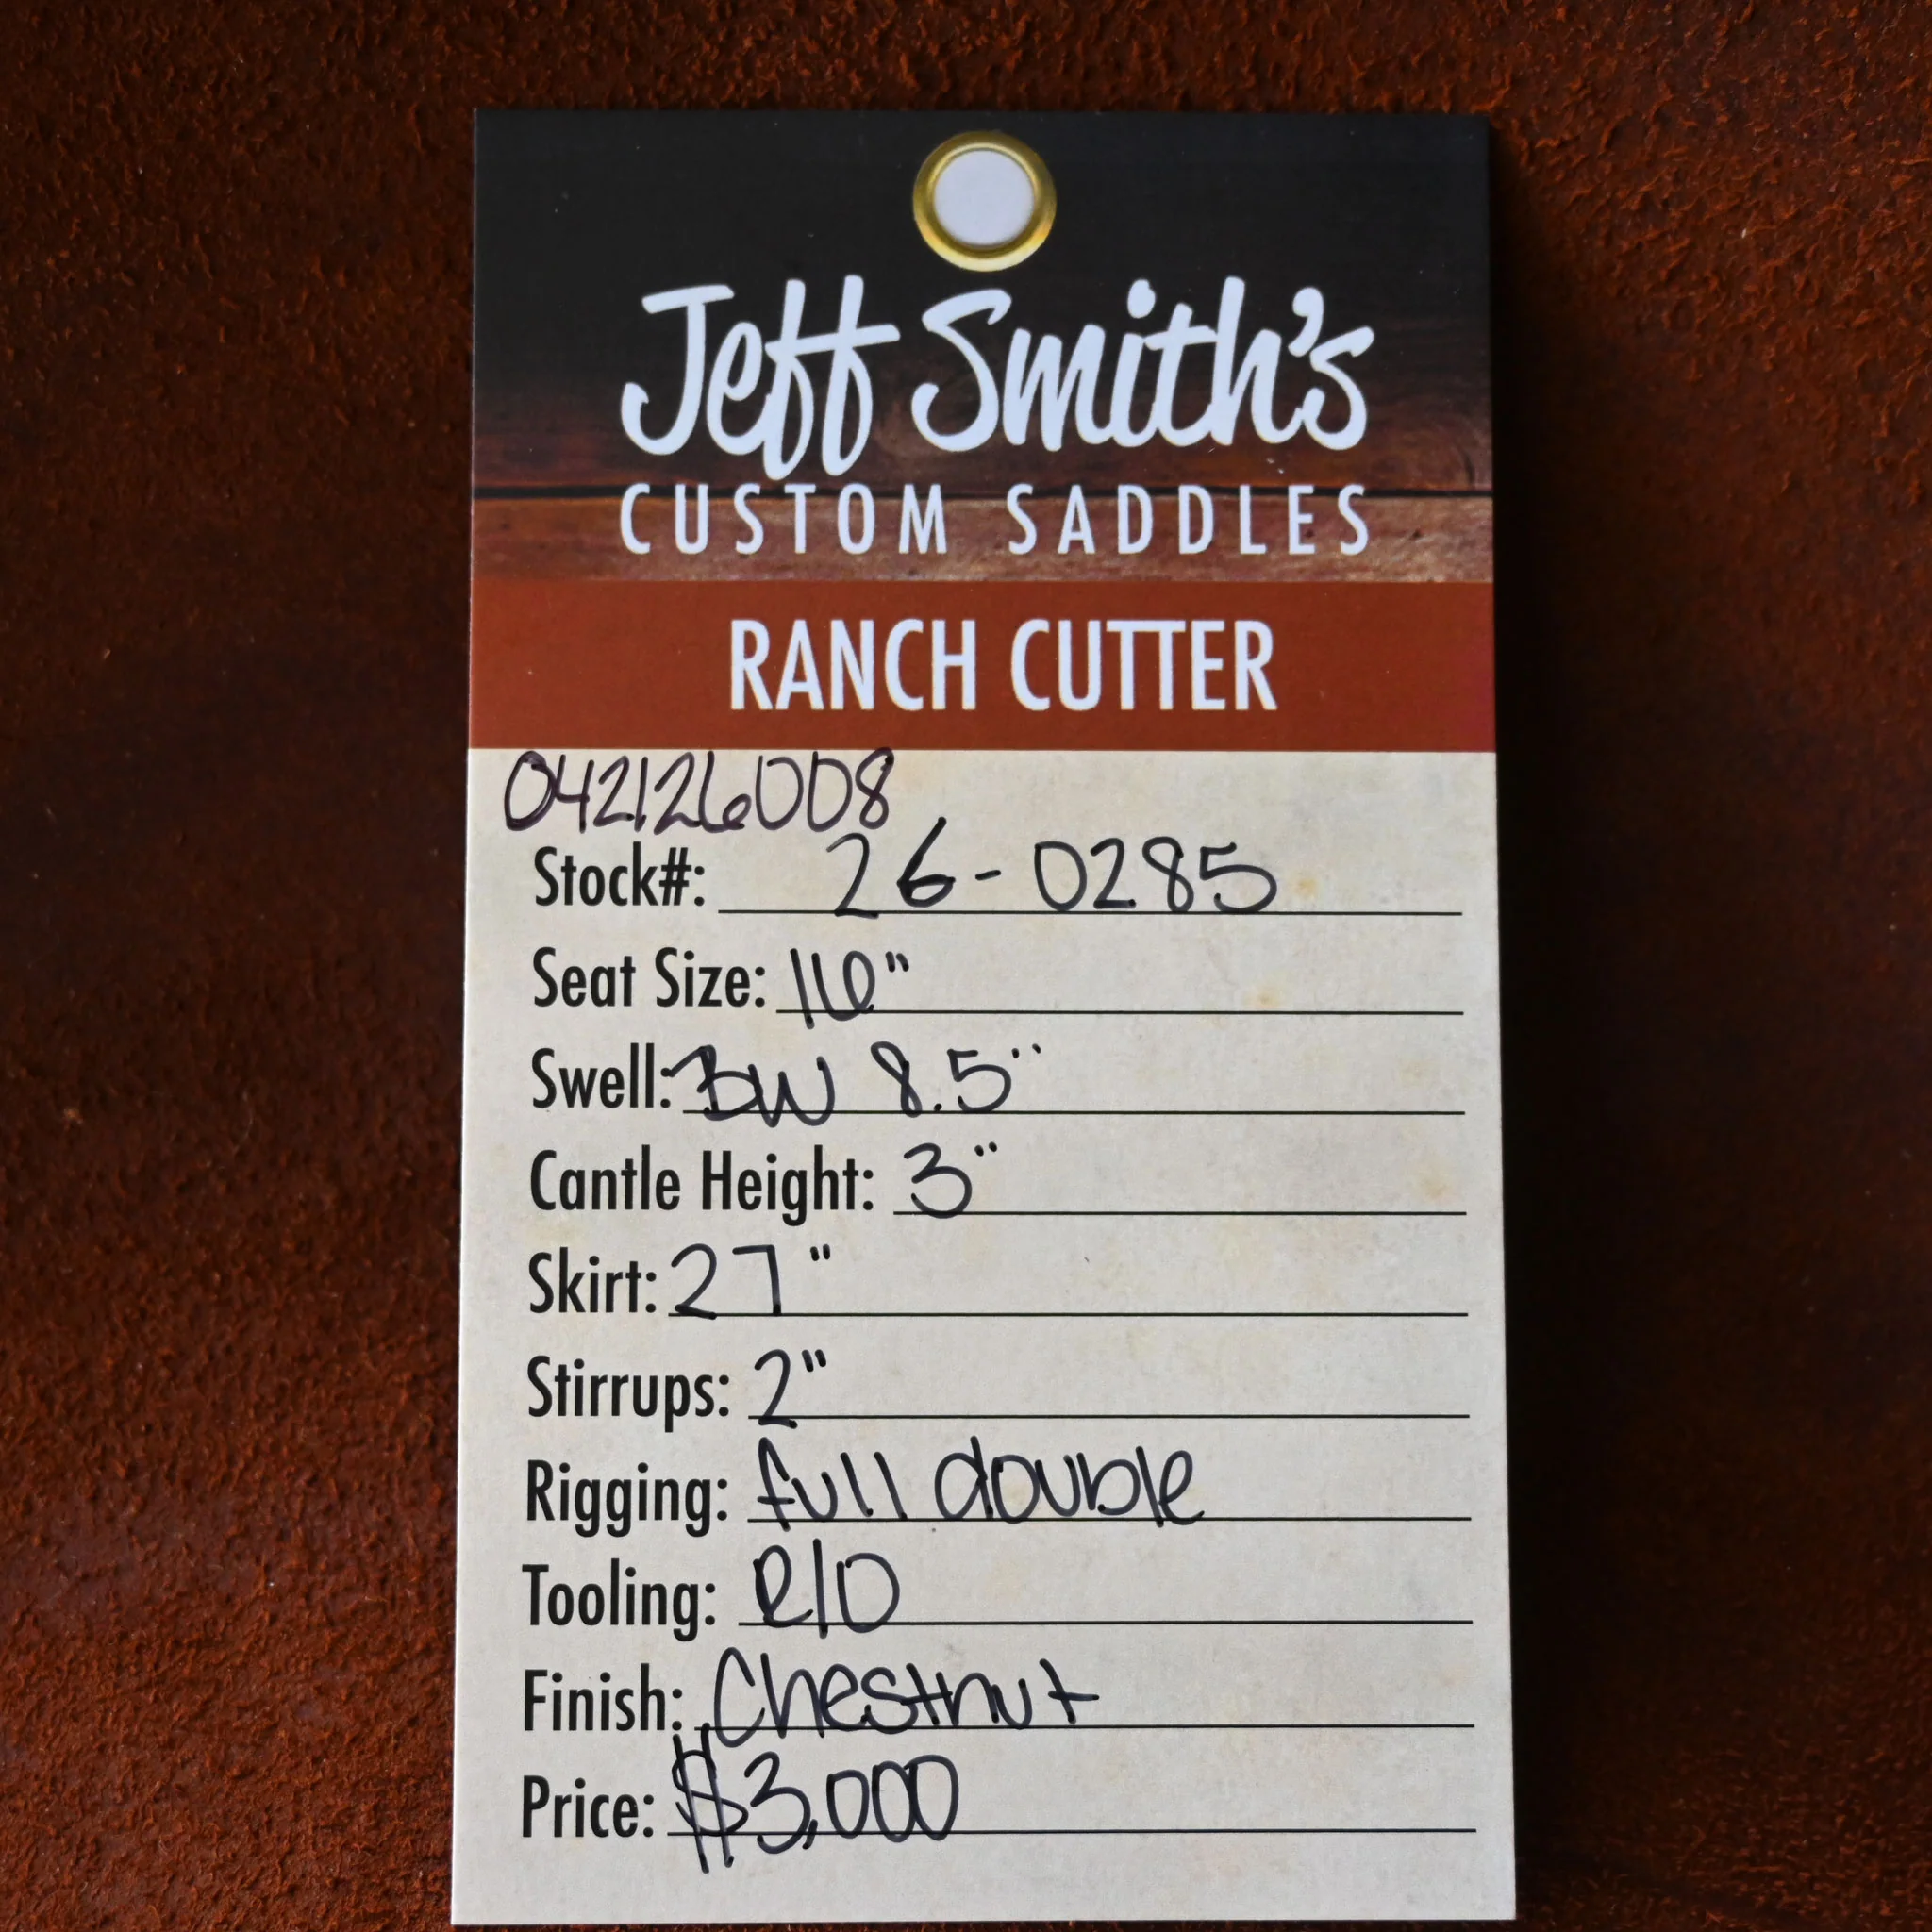 Jeff Smith's
CUSTOM SADDLES
RANCH CUTTER
042126008
Stock#: 26-0285
Seat Size: 16"
Swell: BW 8.5"
Cantle Height: 3"
Skirt: 27"
Stirrups: 2"
Rigging: full double
Tooling: R/O
Finish: Chestnut
Price: $3,000